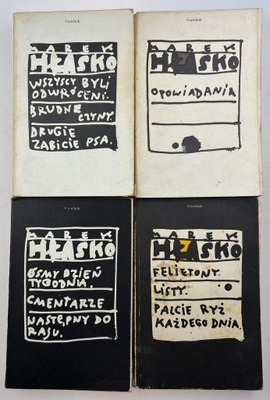 Czytelnik
MAREK
HŁASKO
WSZYSCY BYLI
ODWRÓCENI.
BRUDNE
CZYNY.
DRUGIE
ZABICIE PSA.
Czytelnik
MAREK
HŁASKO
OPOWIADANIA
Czytelnik
MAREK
HŁASKO
ÓSMY DZIEŃ
TYGODNIA.
CMENTARZE
NASTĘPNY DO
RAJU.
Czytelnik
MAREK
HŁASKO
FELIETONY.
LISTY.
PALCIE RYŻ
KAŻDEGO DNIA.